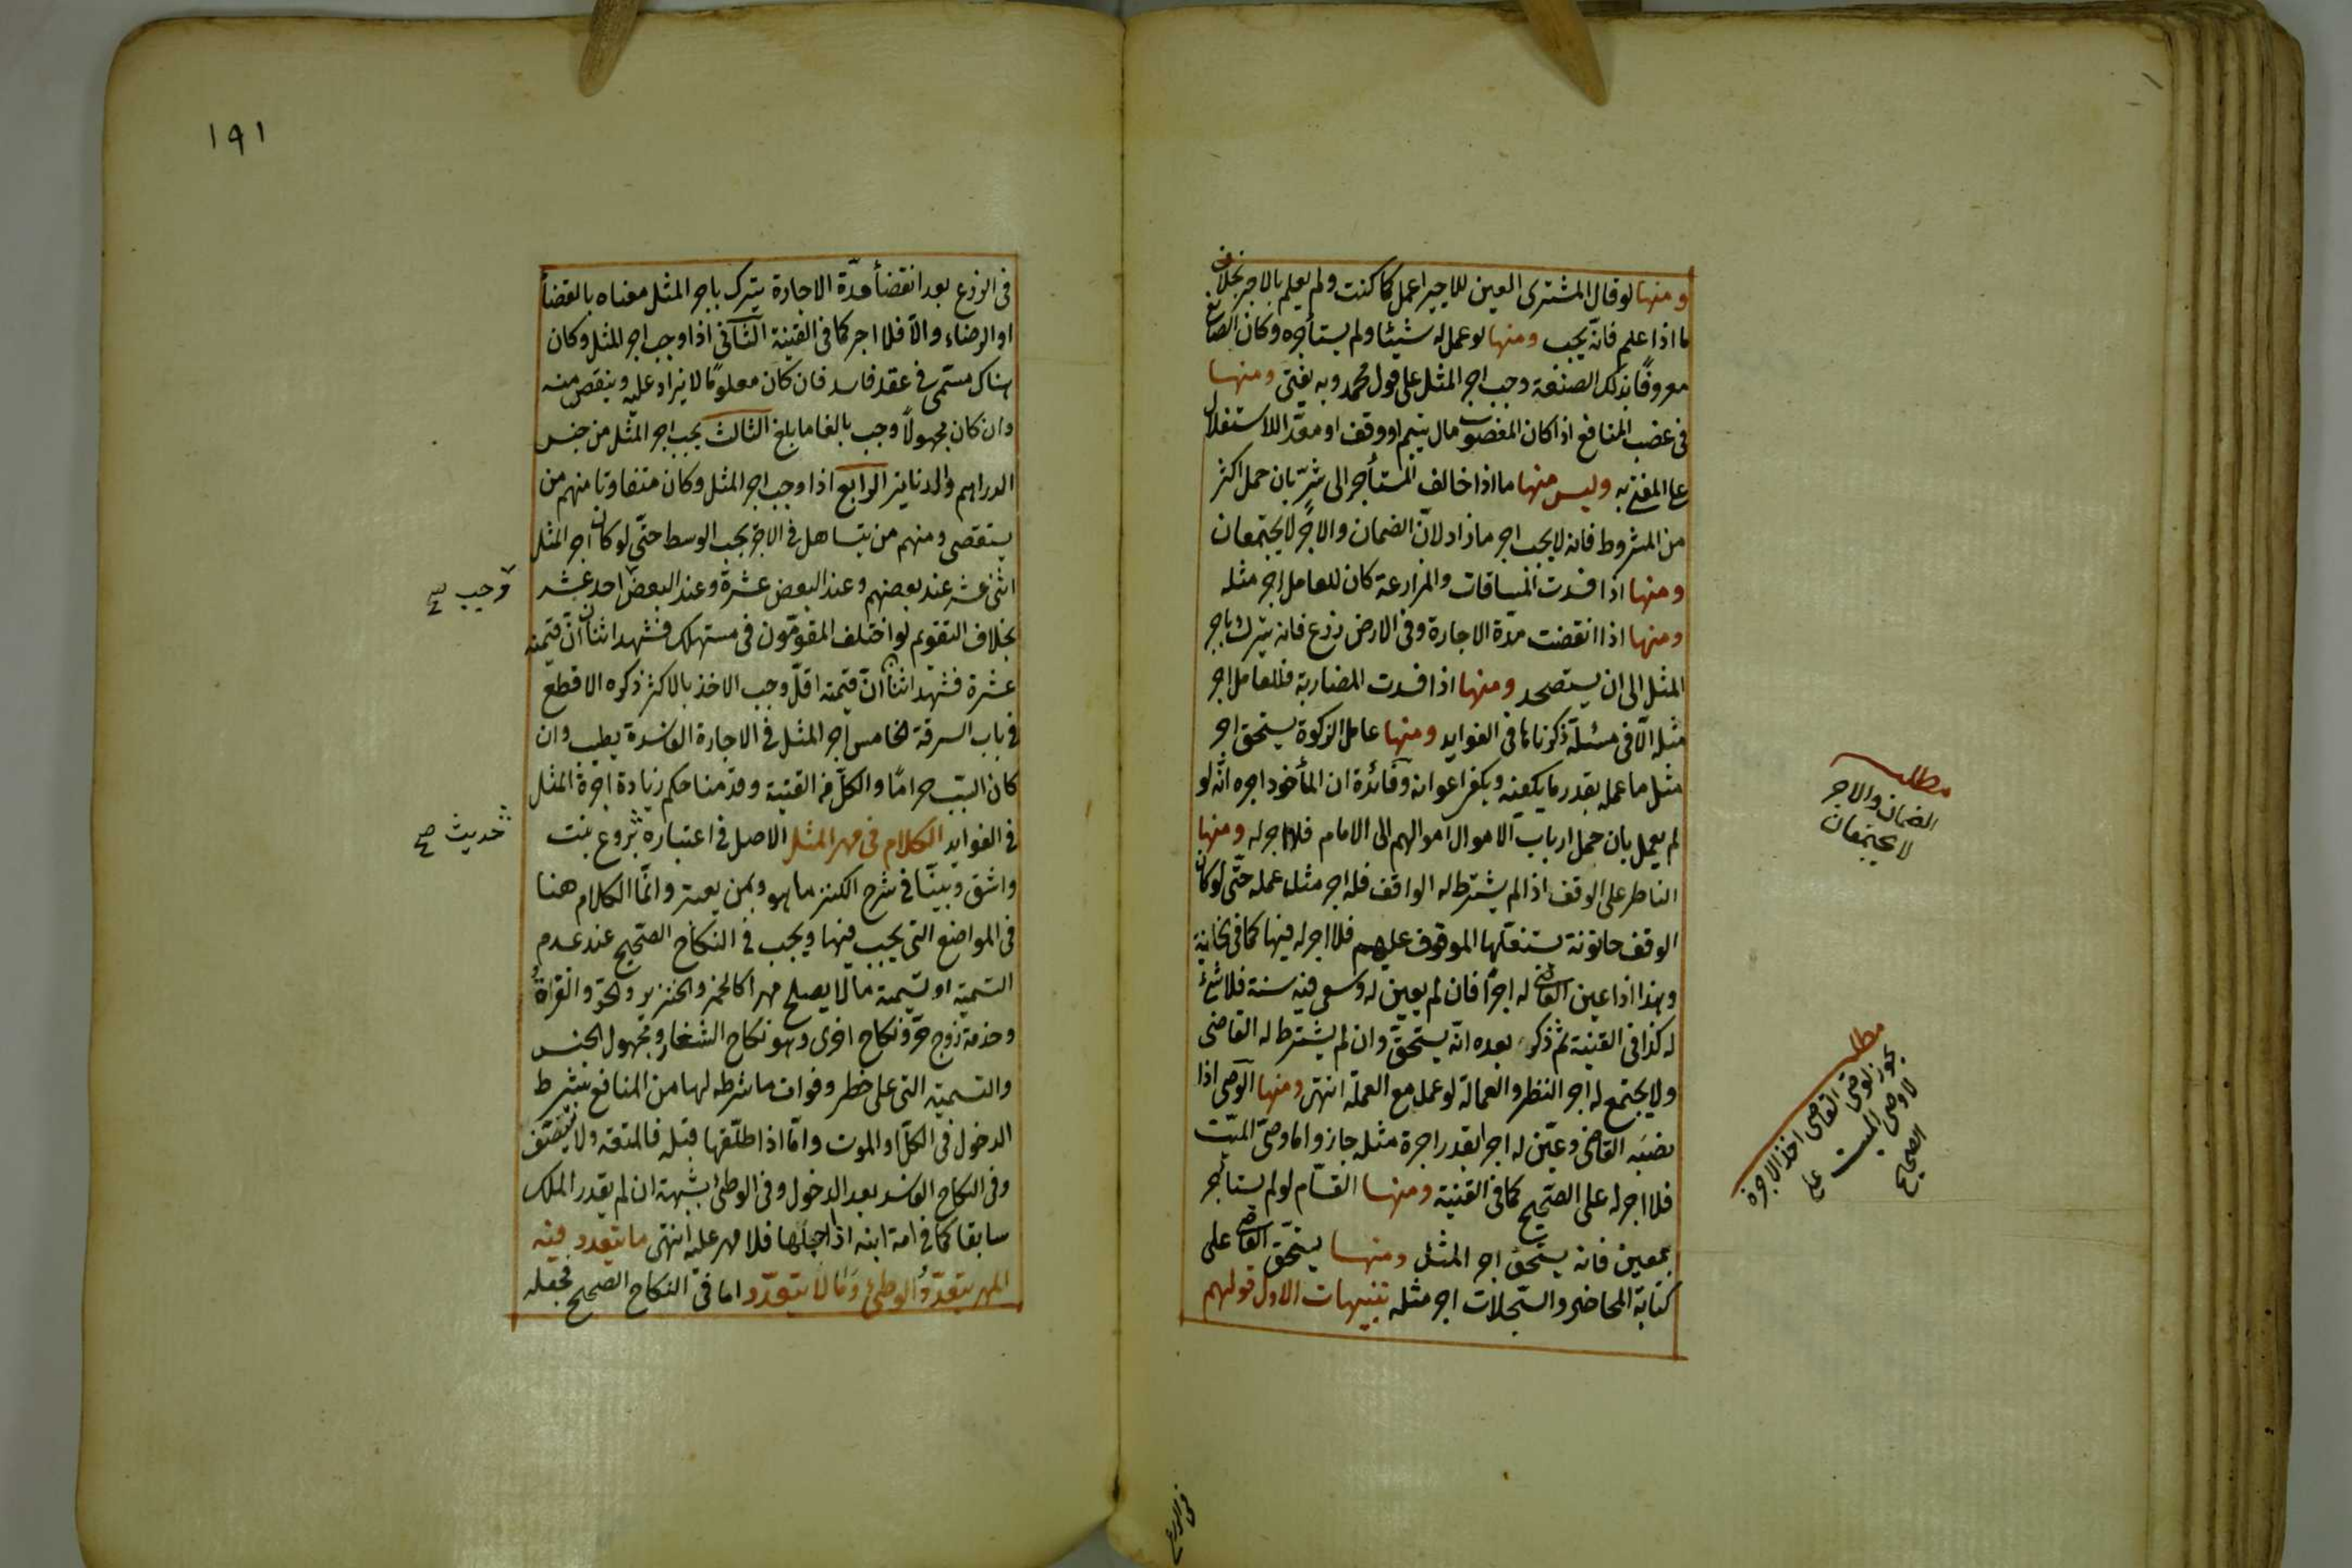 ومنها لو قال المشترى العين للاجير اعمل كما كنت ولم يعلم بالاجر بخلاف
ما اذا علم فانه يجب ومنها لو عمل له شيئا ولم يستأجره وكان الصانع
معروفا بتلك الصنعة وجب اجر المثل على قول محمد وبه يفتى ومنها
فى غصب المنافع اذا كان المغصوب مال يتيم او وقف او معدّا للاستغلال
على المفتى به وليس منها ما اذا خالف المستأجر الى شرّ بان حمل اكثر
من المشروط فانه لا يجب اجر ما زاد لانّ الضمان والاجر لا يجتمعان
ومنها اذا فسدت المساقات والمزارعة كان للعامل اجر مثله
ومنها اذا انقضت مدّة الاجارة وفى الارض زرع فانه يترك باجر
المثل الى ان يستحصد ومنها اذا فسدت المضاربة فللعامل اجر
مثله الّا فى مسئلة ذكرناها فى الفوايد ومنها عامل الزكوة يستحق اجر
مثل ما عمله بقدر ما يكفيه ويكفى اعوانه وفائدة ان المأخوذ اجره انّه لو
لم يعمل بان حمل ارباب الاموال اموالهم الى الامام فلا اجر له ومنها
الناظر على الوقف اذا لم يشترط له الواقف فله اجر مثل عمله حتّى لو كان
الوقف حانوتة يستغلّها الموقوف عليهم فلا اجر له فيها كما فى الخانية
وهذا اذا عين القاضى له اجرا فان لم يعين له وسعى فيه سنة فلا شئ
له كذا فى القنية ثم ذكر بعده انّه يستحقّ وان لم يشترط له القاضى
ولا يجتمع له اجر النظر والعمالة لو عمل مع العملة انتهى ومنها الوصى اذا
نصبه القاضى وعيّن له اجرا بقدر اجرة مثله جاز واما وصى الميّت
فلا اجر له على الصّحيح كما فى القنية ومنها القسّام لو لم يستأجر
بمعين فانه يستحق اجر المثل ومنها يستحقّ القاضى على
كتابة المحاضر والسّجلات اجر مثله تنبيهات الاول قولهم
مطلب
الضمان والاجر
لا يجتمعان
مطلب
يجوز لوصى القاضى اخذ الاجرة
لا وصى الميت على
الصحيح
فى الزرع
١٩١
فى الزرع بعد انقضأ مدّة الاجارة يترك باجر المثل معناه بالقضأ
او الرضاء والّا فلا اجر كما فى القنية الثّانى اذا وجب اجر المثل وكان
هناك مسمّى فى عقد فاسد فان كان معلومًا لا يزاد عليه وينقص منه
وان كان مجهولاً وجب بالغا ما بلغ الثالث يجب اجر المثل من جنس
الدراهم والدنانير الرابع اذا وجب اجر المثل وكان متفاوتا منهم من
يستقصى ومنهم من يتساهل فى الاجر يجب الوسط حتّى لو كان اجر المثل
اثنى عشر عند بعضهم وعند البعض عشرة وعند البعض احد عشر
بخلاف التقويم لو اختلف المقوّمون فى مستهلك فشهد اثنان انّ قيمته
عشرة فشهد اثنان انّ قيمته اقلّ وجب الاخذ بالاكثر ذكره الاقطع
فى باب السرقة الخامس اجر المثل فى الاجارة الفاسدة يطيب وان
كان السّبب حرامًا والكلّ فى القنية وقدّمنا حكم زيادة اجرة المثل
فى الفوايد الكلام فى مهر المثل الاصل فى اعتباره بروع بنت
واشق وبيّنا فى شرح الكنز ما هو وبمن يعتبر وانّما الكلام هنا
فى المواضع التى يجب فيها ويجب فى النكاح الصّحيح عند عدم
التسمية او تسمية ما لا يصلح مهرا كالخمر والخنزير والحرّ والقرأة
وخدمة زوج حرّ ونكاح اخرى وهو نكاح الشغار ومجهول الجنس
والتسمية التى على خطر وفوات ما شرطه لها من المنافع بشرط
الدخول فى الكلّ او الموت وامّا اذا طلّقها قبله فالمتعة ولا يتنصّف
وفى النكاح الفاسد بعد الدخول وفى الوطئ بشبهة ان لم يقدر الملك
سابقا كما فى امة ابنه اذا احبلها فلا مهر عليه انتهى ما يتعدد فيه
المهر بتعدّد الوطئ وما لا يتعدّد اما فى النكاح الصحيح فجعله
وجب صح
حديث صح